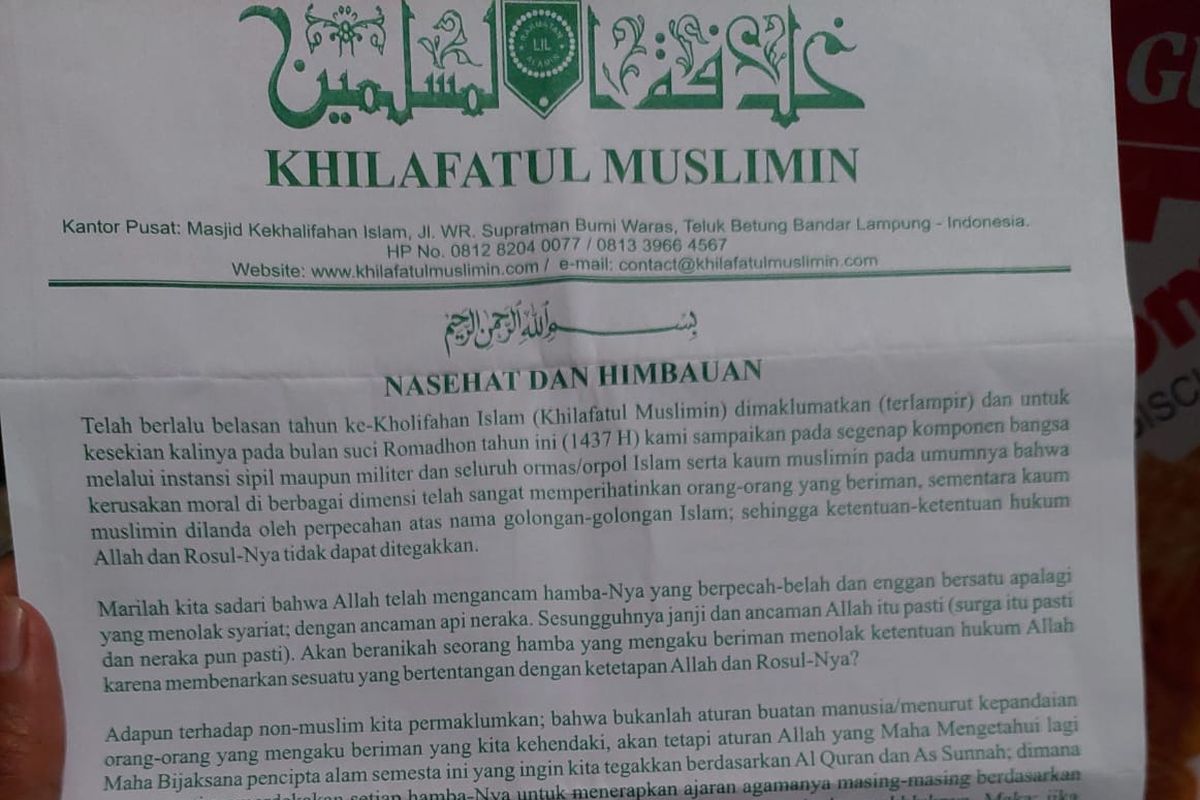 خلافة المسلمين
RAHMATAN
LIL
ALAMIN
KHILAFATUL MUSLIMIN
Kantor Pusat: Masjid Kekhalifahan Islam, Jl. WR. Supratman Bumi Waras, Teluk Betung Bandar Lampung - Indonesia.
HP No. 0812 8204 0077 / 0813 3966 4567
Website: www.khilafatulmuslimin.com / e-mail: contact@khilafatulmuslimin.com
بسم الله الرحمن الرحيم
NASEHAT DAN HIMBAUAN
Telah berlalu belasan tahun ke-Kholifahan Islam (Khilafatul Muslimin) dimaklumatkan (terlampir) dan untuk
kesekian kalinya pada bulan suci Romadhon tahun ini (1437 H) kami sampaikan pada segenap komponen bangsa
melalui instansi sipil maupun militer dan seluruh ormas/orpol Islam serta kaum muslimin pada umumnya bahwa
kerusakan moral di berbagai dimensi telah sangat memperihatinkan orang-orang yang beriman, sementara kaum
muslimin dilanda oleh perpecahan atas nama golongan-golongan Islam; sehingga ketentuan-ketentuan hukum
Allah dan Rosul-Nya tidak dapat ditegakkan.
Marilah kita sadari bahwa Allah telah mengancam hamba-Nya yang berpecah-belah dan enggan bersatu apalagi
yang menolak syariat; dengan ancaman api neraka. Sesungguhnya janji dan ancaman Allah itu pasti (surga itu pasti
dan neraka pun pasti). Akan beranikah seorang hamba yang mengaku beriman menolak ketentuan hukum Allah
karena membenarkan sesuatu yang bertentangan dengan ketetapan Allah dan Rosul-Nya?
Adapun terhadap non-muslim kita permaklumkan; bahwa bukanlah aturan buatan manusia/menurut kepandaian
orang-orang yang mengaku beriman yang kita kehendaki, akan tetapi aturan Allah yang Maha Mengetahui lagi
Maha Bijaksana pencipta alam semesta ini yang ingin kita tegakkan berdasarkan Al Quran dan As Sunnah; dimana
setiap hamba-Nya untuk menerapkan ajaran agamanya masing-masing berdasarkan